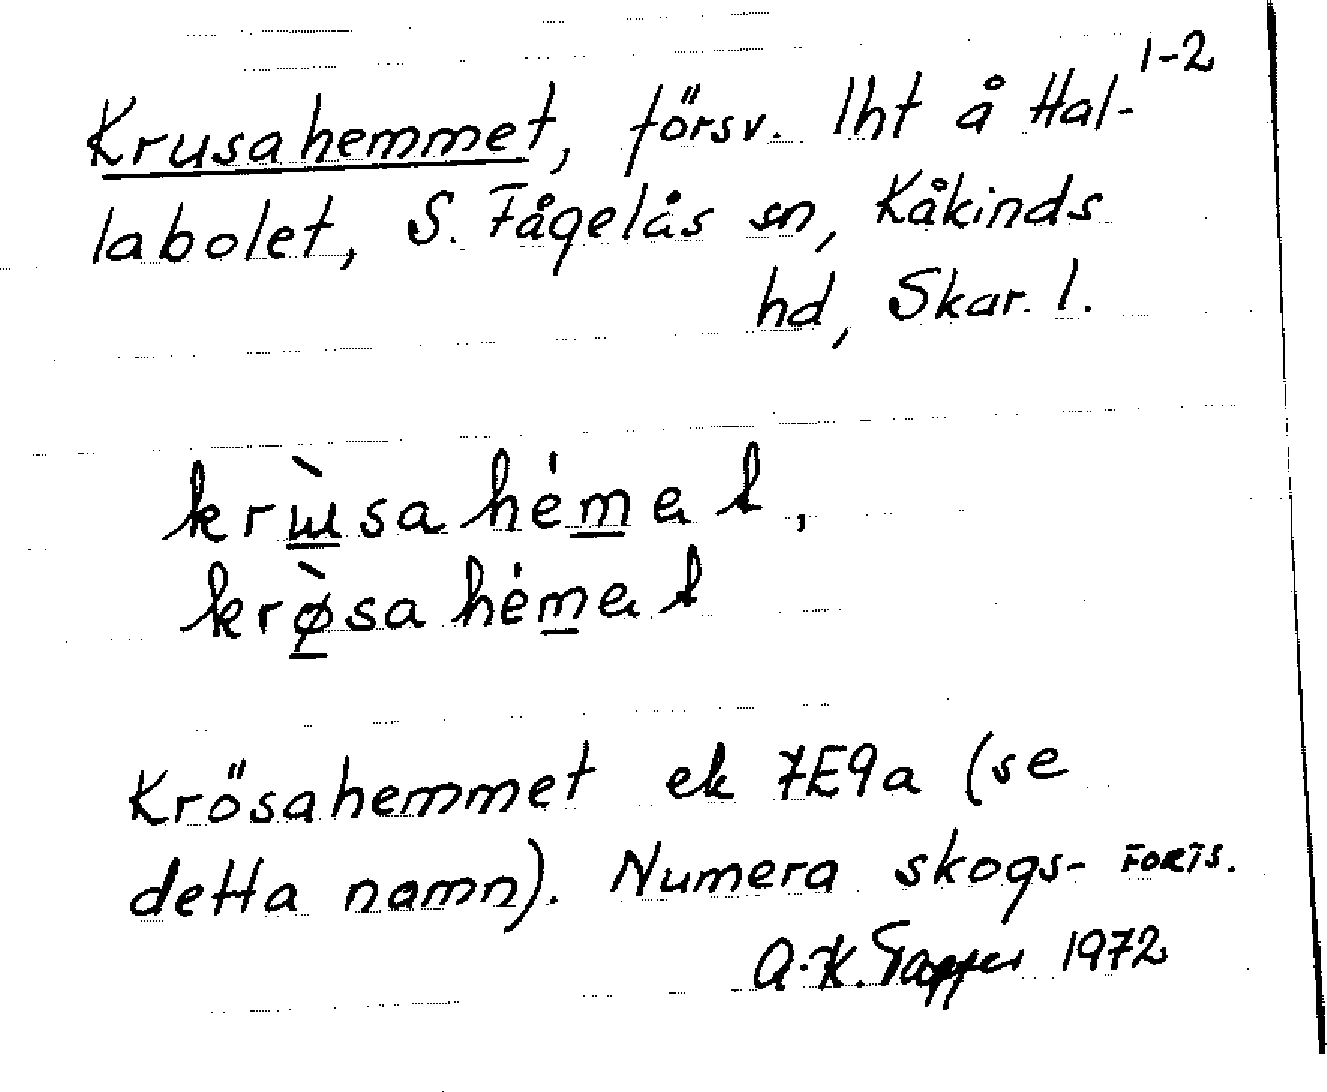 1-2
Krusahemmet, försv. lht å Hal-
labolet, S. Fågelås sn, Kåkinds
hd, Skar. l.
krɯ̀sahémat,
krø̀sahémat
Krösahemmet ek 7E9a (se
detta namn). Numera skogs- FORTS.
A.-K. Tapper 1972